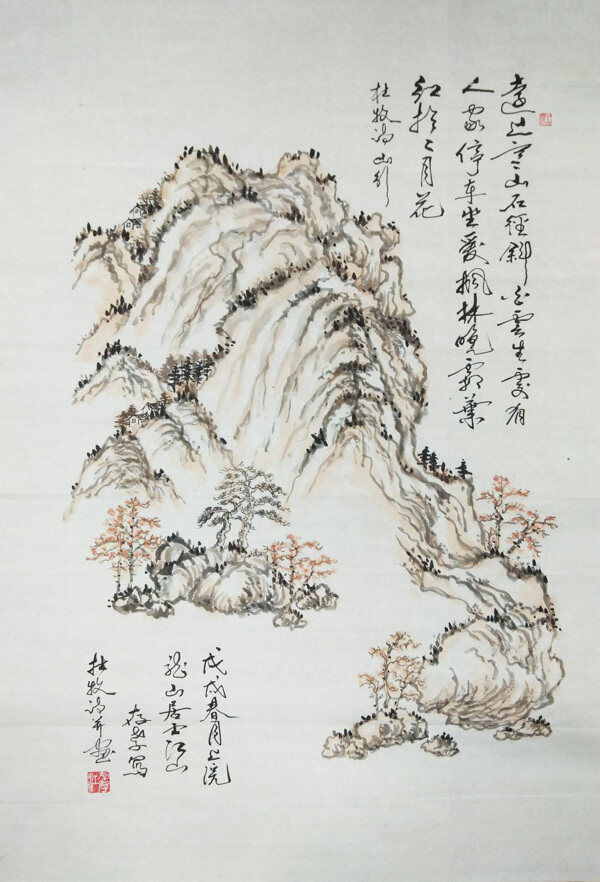 遠上寒山石徑斜白雲生處有
人家停車坐愛楓林晚霜葉
紅於二月花
杜牧詩山行
戊戌春月上浣
龍山居
寫
杜牧詩并畫